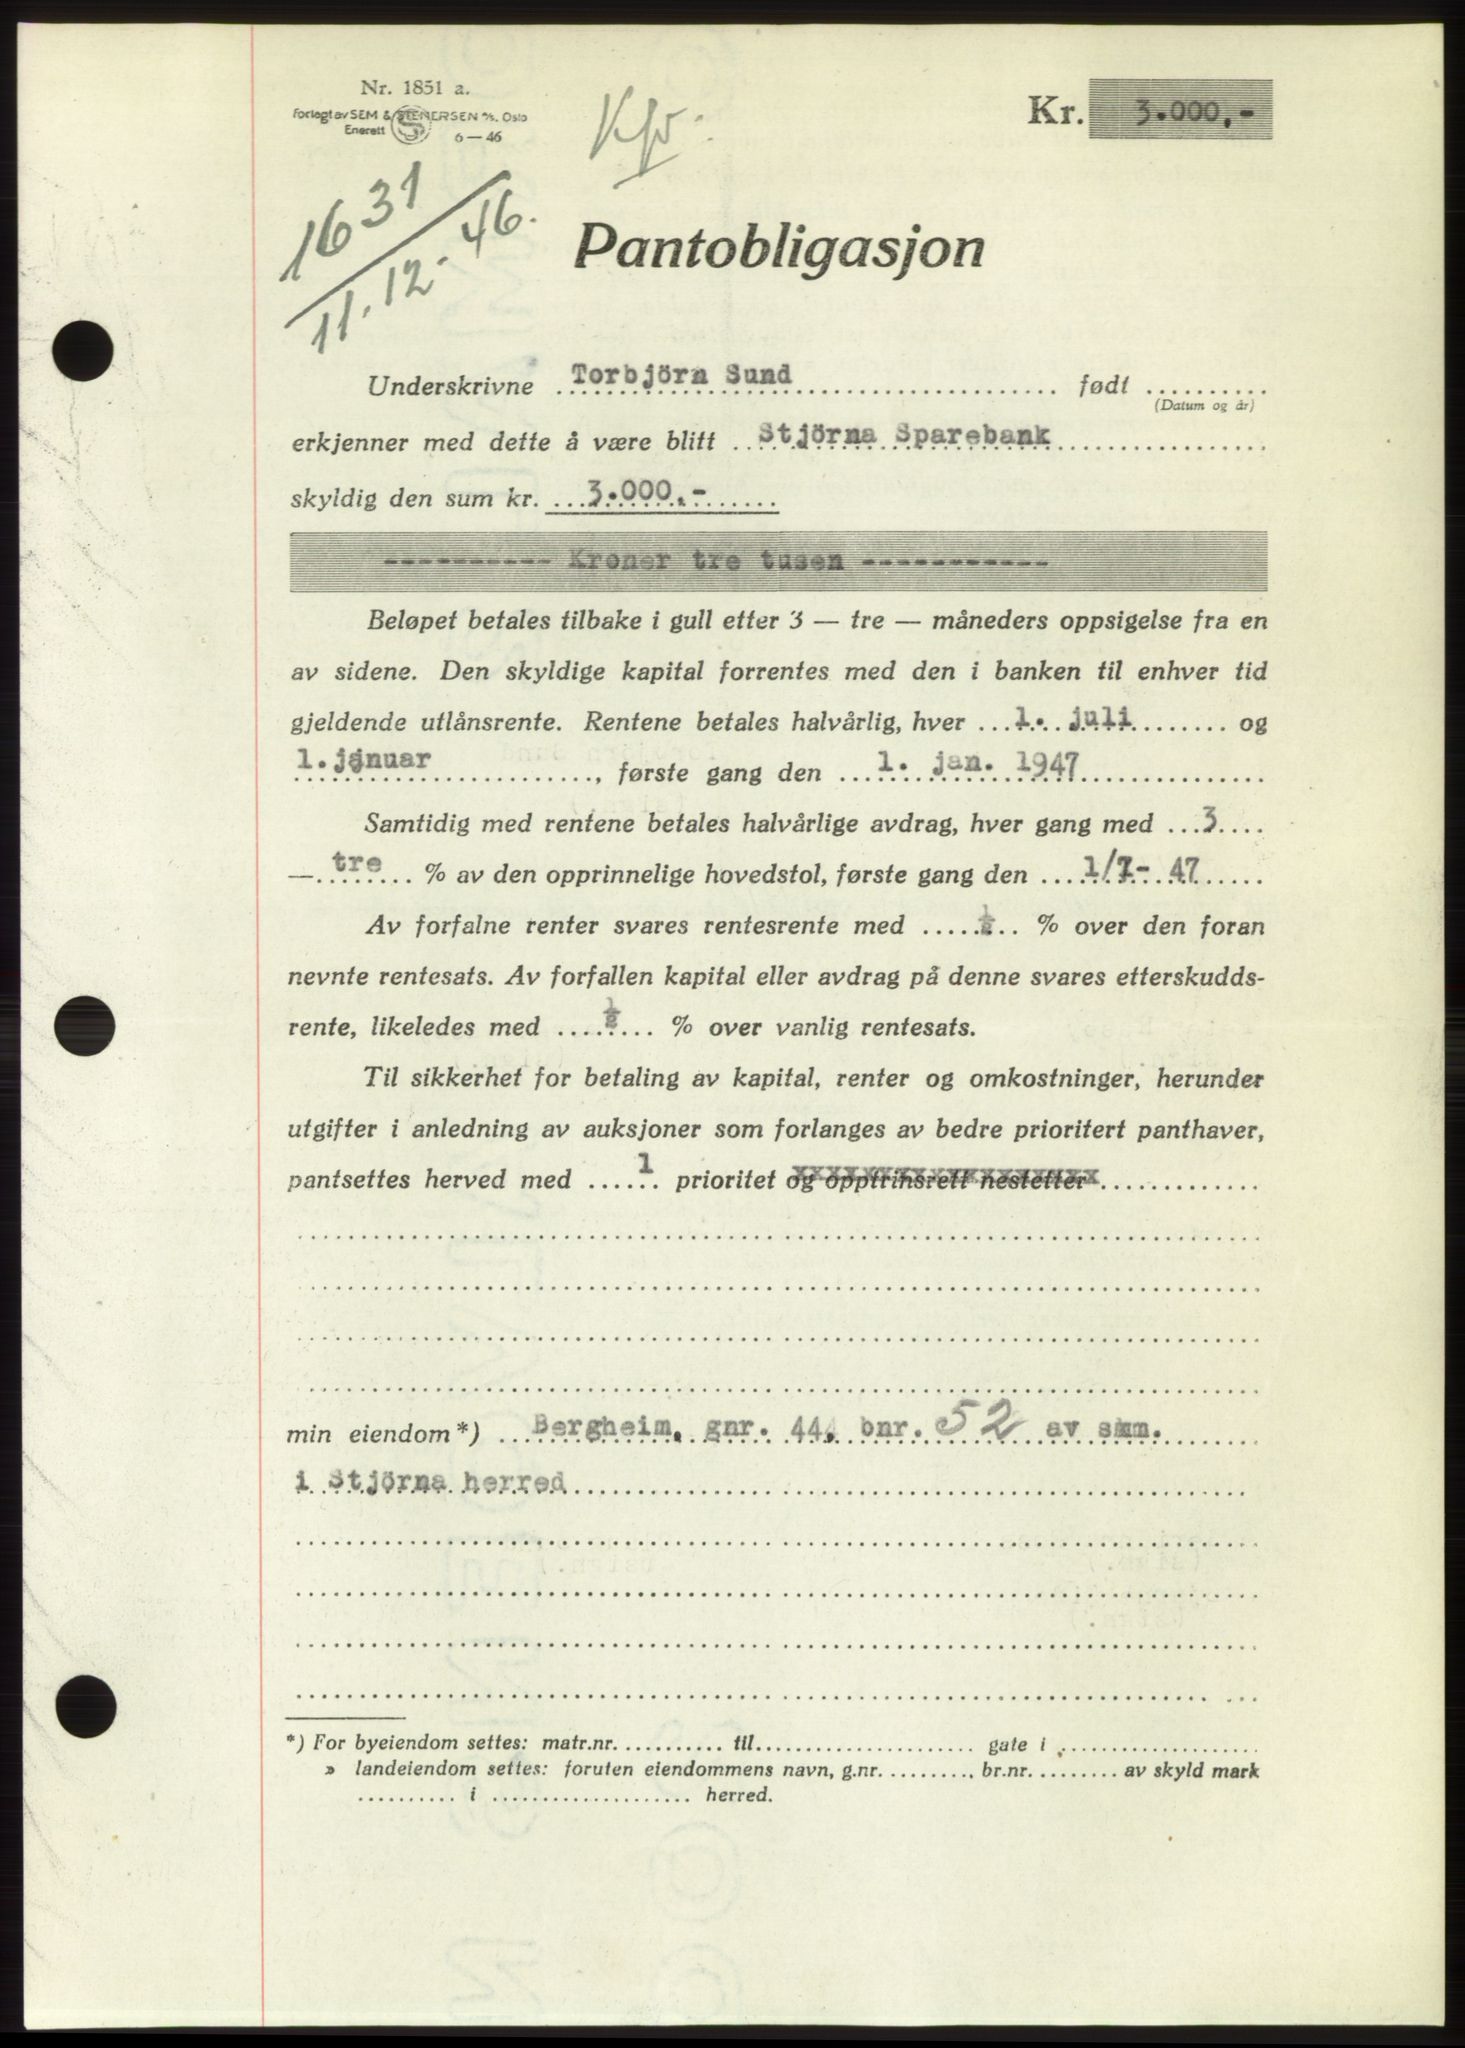 Nr. 1851 a.
Forlagt av SEM & STENERSEN A/S. Oslo
Enerett
6 — 46
Kr. 3.000,-
1631
11.12.46.
Pantobligasjon
Underskrivne Torbjörn Sund født
(Datum og år)
erkjenner med dette å være blitt Stjörna Sparebank
skyldig den sum kr. 3.000,-
---------- Kroner tre tusen -----------
Beløpet betales tilbake i gull etter 3 — tre — måneders oppsigelse fra en
av sidene. Den skyldige kapital forrentes med den i banken til enhver tid
gjeldende utlånsrente. Rentene betales halvårlig, hver 1. juli og
1. januar, første gang den 1. jan. 1947
Samtidig med rentene betales halvårlige avdrag, hver gang med 3
— tre % av den opprinnelige hovedstol, første gang den 1/7- 47
Av forfalne renter svares rentesrente med ½ % over den foran
nevnte rentesats. Av forfallen kapital eller avdrag på denne svares etterskudds-
rente, likeledes med ½ % over vanlig rentesats.
Til sikkerhet for betaling av kapital, renter og omkostninger, herunder
utgifter i anledning av auksjoner som forlanges av bedre prioritert panthaver,
pantsettes herved med 1 prioritet og opptrinsrett nestetter
min eiendom*) Bergheim, gnr. 44, bnr. 52 av smm.
i Stjörna herred
*) For byeiendom settes: matr.nr. til gate i
» landeiendom settes: foruten eiendommens navn, g.nr. , br.nr. av skyld mark
i herred.